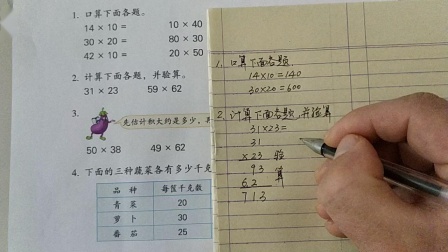 1. 口算下面各题。
14 × 10 = 10 × 40
30 × 20 = 80 × 30
42 × 10 = 20 × 50
2. 计算下面各题，并验算。
31 × 23 59 × 62
3. 先估计积大约是多少，再
50 × 38 49 × 62
4. 下面的三种蔬菜各有多少千克
品种 每筐千克数
青菜 20
萝卜 30
番茄 25
1. 口算下面各题.
14×10=140
30×20=600
2. 计算下面各题,并验算
31×23=
31
×23 验
93 算
62
713